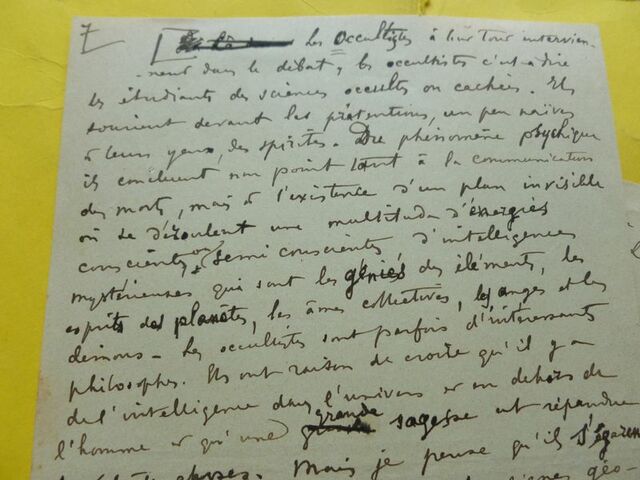 7
Les Occultistes à leur tour intervien-
nent dans le débat, les occultistes c'est à dire
les étudiants des sciences occultes ou cachées. Ils
sourient devant les prétentions, un peu naïves
à leurs yeux, des spirites. Du phénomène psychique
ils concluent non point tant à la communication
des morts, mais à l'existence d'un plan invisible
où se déroulent une multitude d'énergies
conscientes ou semi conscientes d'intelligences
mystérieuses qui sont les génies des éléments, les
esprits des planètes, les âmes collectives, les anges et les
démons - Les occultistes sont parfois d'intéressants
philosophes. Ils ont raison de croire qu'il y a
de l'intelligence dans l'univers et en dehors de
l'homme et qu'une grande sagesse est répandue
choses. Mais je pense qu'ils s'égarent
géo-